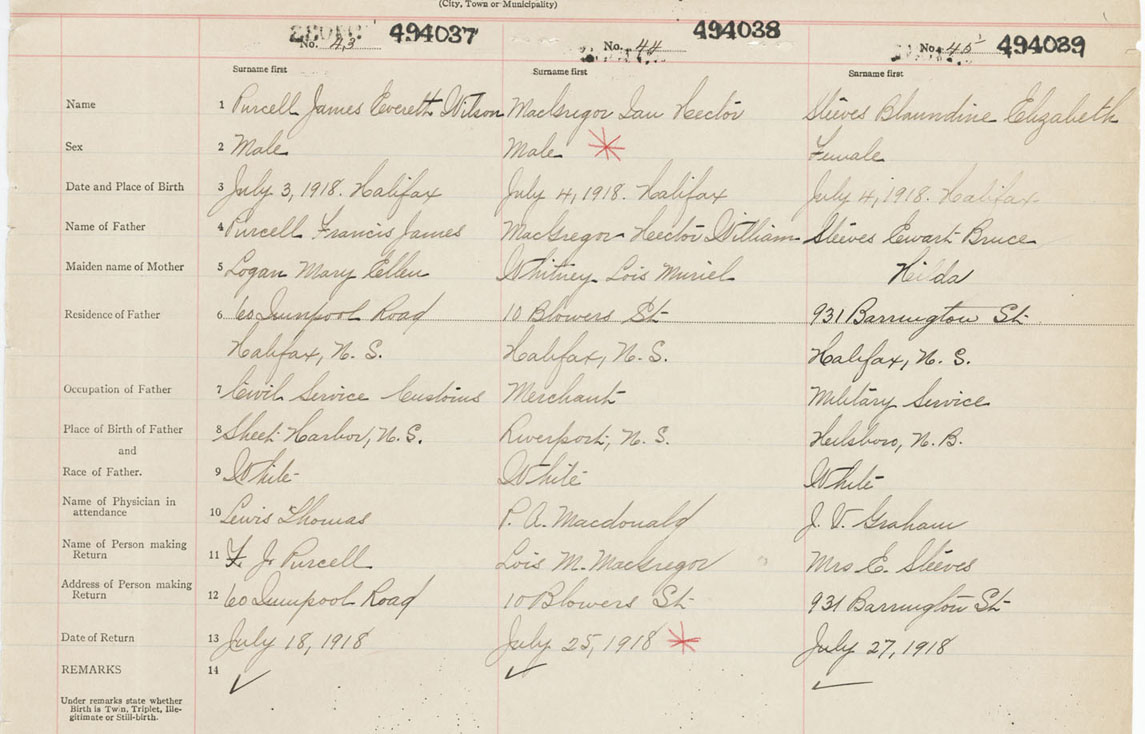 (City, Town or Municipality)
No. 43 494037 No. 44 494038 No. 45 494039
Surname first Surname first Surname first
Name 1 Purcell James Everett Wilson MacGregor Ian Hector Steeves Blaundine Elizabeth
Sex 2 Male Male Female
Date and Place of Birth 3 July 3, 1918. Halifax July 4, 1918. Halifax July 4, 1918. Halifax
Name of Father 4 Purcell Francis James MacGregor Hector William Steeves Ewart Bruce
Maiden name of Mother 5 Logan Mary Ellen Whitney Lois Muriel Hilda
Residence of Father 6 60 Quinpool Road 10 Blowers St 931 Barrington St
Halifax, N. S. Halifax, N. S. Halifax, N. S.
Occupation of Father 7 Civil Service Customs Merchant Military Service
Place of Birth of Father 8 Sheet Harbor, N.S. Riverport, N. S. Hillsboro, N. B.
and
Race of Father. 9 White White White
Name of Physician in
attendance 10 Lewis Thomas P. A. Macdonald J. V. Graham
Name of Person making
Return 11 F. J. Purcell Lois M. MacGregor Mrs E. Steeves
Address of Person making
Return 12 60 Quinpool Road 10 Blowers St 931 Barrington St
Date of Return 13 July 18, 1918 July 25, 1918 July 27, 1918
REMARKS 14
Under remarks state whether
Birth is Twin, Triplet, Ille-
gitimate or Still-birth.